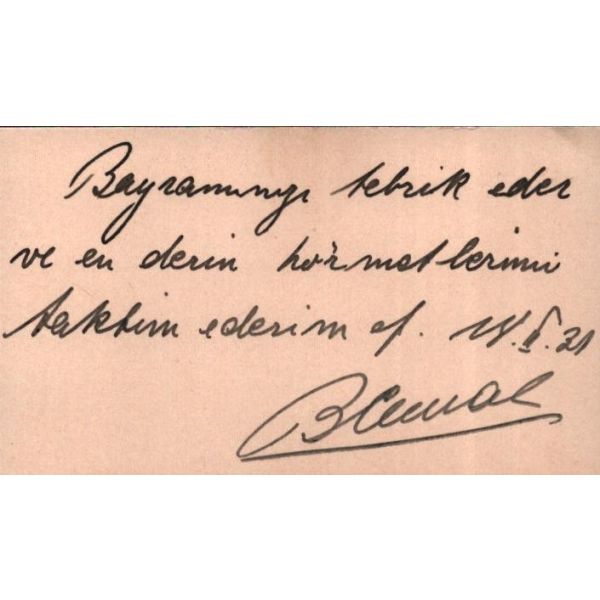 Bayramınızı tebrik eder
ve en derin hörmetlerimi
taktim ederim ef. 18.II.31
BCemal